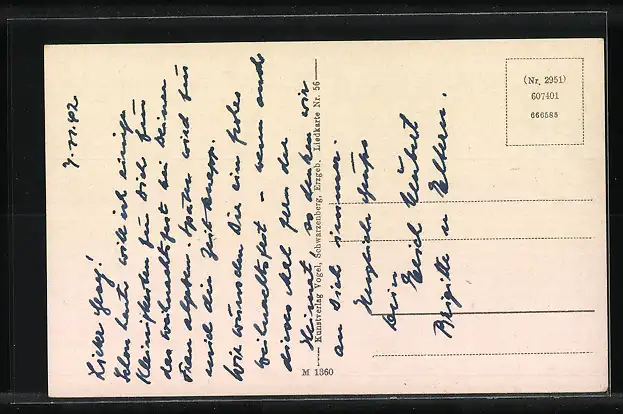 7.XI.42
Lieber Georg!
Schon heute will ich einige
Kleinigkeiten für Dich für
das Weihnachtsfest bei Deinen
Eltern abgeben. Später wird für
mich die Zeit knapp.
Wir wünschen Dir ein frohes
Weihnachtsfest - wenn auch
dieses Mal fern der
Heimat, so denken wir
an Dich immer.
Herzliche Grüße
Deine
Erich Herbert
Brigitte u Eltern.
Kunstverlag Vogel, Schwarzenberg, Erzgeb. Liedkarte Nr. 56
M 1360
(Nr. 2951)
607401
666585